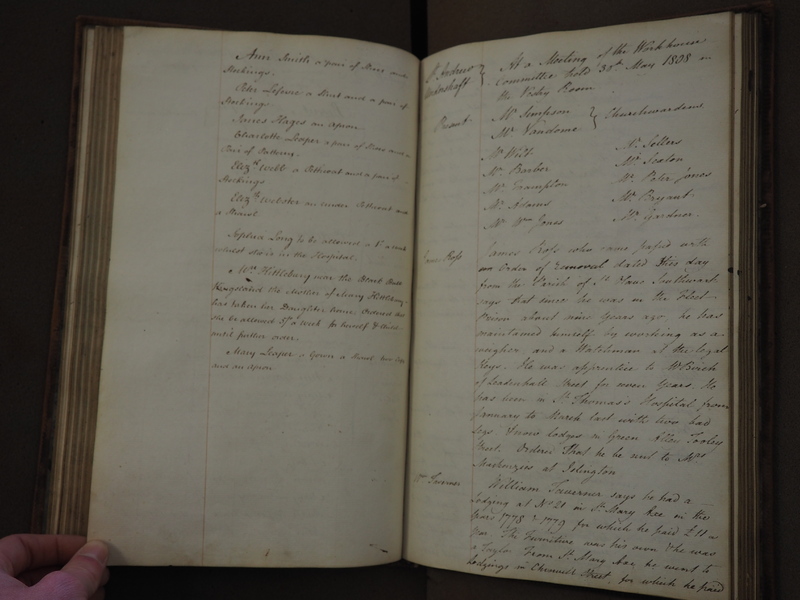 Ann Smith a pair of Shoes and
Stockings.
Peter Lefevre a Shirt and a pair of
Stockings
James Hages an apron
Charlotte Leaper a pair of Shoes and a
Pair of
Elizth Webb a Petticoat and a pair of
Stockings
Elizth Webster an under Petticoat and
a Shawl
Sophia Long to be allowed a week
whilst she is in the Hospital.
Mrs Hittlebury near the Blue Bull
the Mother of Mary Hittlebury
have taken her Daughter home Ordered that
she be allowed a week for herself & Child
until further order.
Mary Leaper a Gown a Shawl
and an apron
St Andrew
Undershaft
At a Meeting of the Workhouse
Committee held 30th May 1808 in
the Vestry Room
Present
Mr Simpson
Mr Vandome
Churchwardens
Mr West Mr Sellers
Mr Barber Mr Seaton
Mr Crampton Mr Peter Jones
Mr Adams Mr Bryant
Mr Wm Jones Mr Gardner
James Ross
James Ross who came passed with
an Order of Removal dated this day
from the Parish of St Southwark
says that since he was in the Fleet
Prison about nine Years ago, he has
maintained himself by working as a
weigher and a Watchman at the legal
Keys. He was apprentice to Mr Burch
of Leadenhall Street for seven Years. He
has been in St Thomas's Hospital from
January to March last with two bad
legs & now lodges in Green Tooley
Street. Ordered that he be sent to Mrs
Mackenzies at Islington
Wm Taverner
William Taverner says he had a
lodging at No 21 in St Mary Axe in the
Years 1778 & 1779 for which he paid £11 a
Year The Furniture was his own & he was
a Taylor From St Mary Axe he went to
lodgings in Street, for which he paid